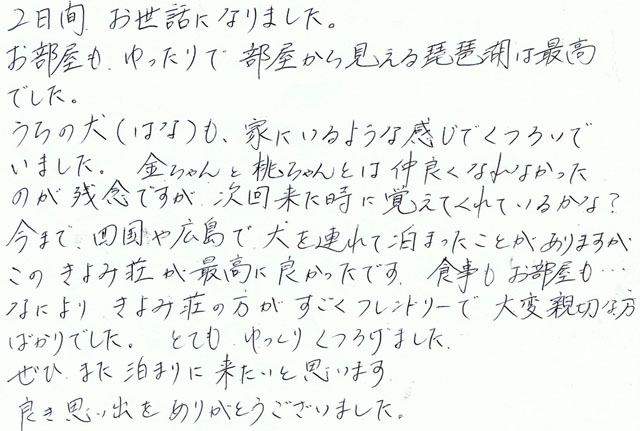 2日間 お世話になりました。
お部屋も、ゆったりで 部屋から見える琵琶湖は最高
でした。
うちの犬(はな)も、家にいるような感じでくつろいで
いました。 金ちゃんと桃ちゃんとは仲良くなれなかった
のが残念ですが 次回来た時に覚えてくれているかな?
今まで 四国や広島で 犬を連れて泊まったことがありますが
この きよみ荘が最高に良かったです 食事も お部屋も…
なにより きよみ荘の方が すごくフレンドリーで 大変親切な方
ばかりでした。 とても ゆっくりくつろげました
ぜひ また 泊まりに 来たいと思います
良き思い出を ありがとうございました。